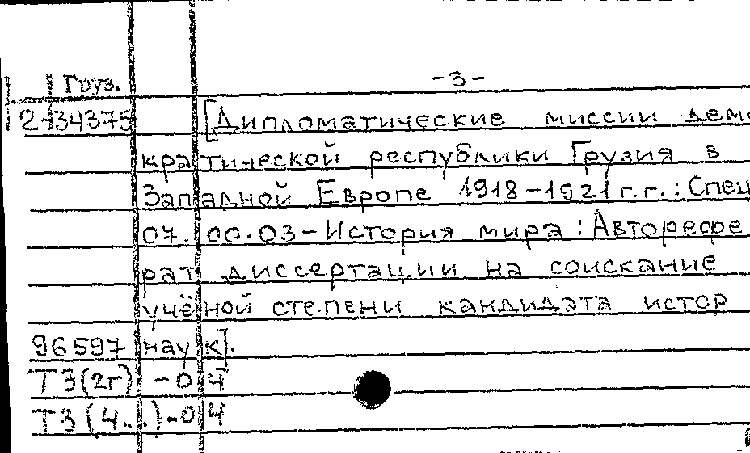 Груз. -3-
2-34375 [Дипломатические миссии демо
кратической республики Грузия в
Западной Европе 1918-1921 г.г.: Спец
07.00.03-История мира: Авторефе
рат диссертации на соискание
учёной степени кандидата истор
96597 наук].
Т3(2г)-04
Т3(4...)-04